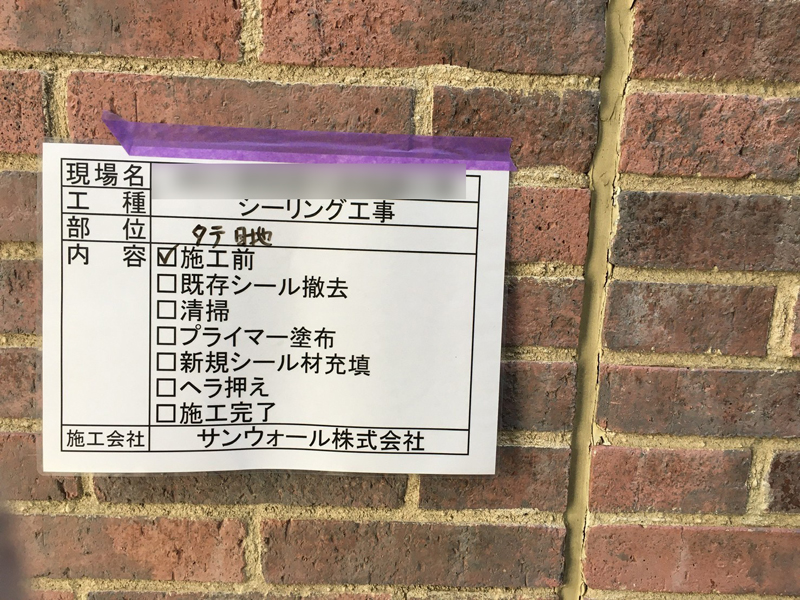 現場名
工種 シーリング工事
部位 タテ目地
内容 ☑施工前
□既存シール撤去
□清掃
□プライマー塗布
□新規シール材充填
□ヘラ押え
□施工完了
施工会社 サンウォール株式会社